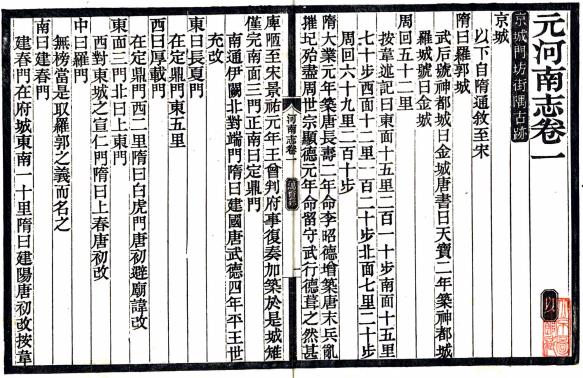 元河南志卷一
京城門坊街隅古跡
以下自隋通敘至宋
京城
隋曰羅郭城
武后號神都城曰金城唐書曰天寶二年築神都城
羅城號曰金城
周回五十二里
按韋述記曰東面十五里二百一十步南面十五里
七十步西面十二里一百二十步北面七里二十步
周回六十九里二百一十步
隋大業元年築唐長壽二年命李昭德增築唐末兵亂
摧圮殆盡周世宗顯德元年命留守武行德葺之然甚
庫陋至宋景祐元年王曾判府事復奏加築於是城雉
僅完南面三門正南曰定鼎門
河南志卷一
南通伊闕北對端門隋曰建國唐武德四年平王世
充改
東曰長夏門
在定鼎門東五里
西曰厚載門
在定鼎門西二里隋曰白虎門唐初避廟諱改
東面三門北曰上東門
西對東城之宣仁門隋曰上春唐初改
中曰羅門
無榜當是取羅郭之義而名之
南曰建春門
建春門在府城東南一十里隋曰建陽唐初改按韋